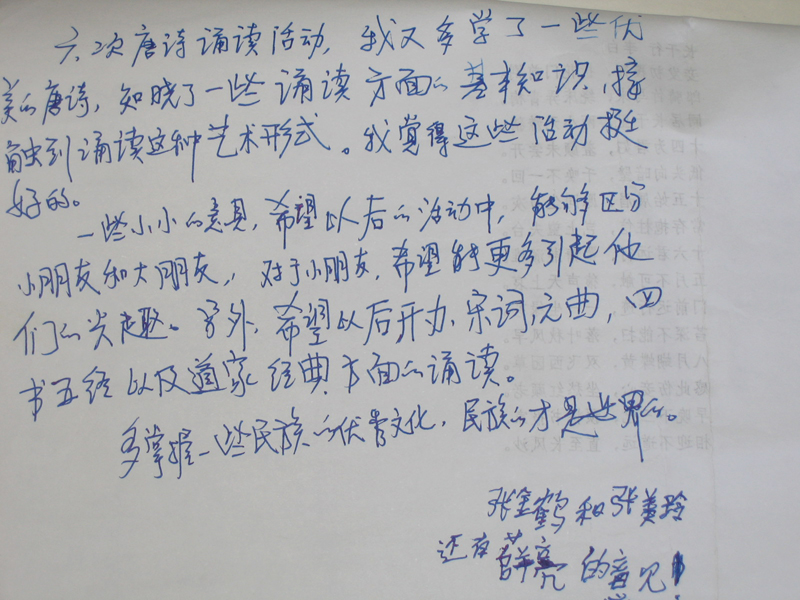 六次唐诗诵读活动，我又多学了一些优
美的唐诗，知晓了一些诵读方面的基本知识，接
触到诵读这种艺术形式。我觉得这些活动挺
好的。
一些小小的意见，希望以后的活动中，能够区分
小朋友和大朋友，对于小朋友，希望能更多引起他
们的兴趣。另外，希望以后开办宋词元曲，四
书五经以及道家经典方面的诵读。
多掌握一些民族的优秀文化，民族的才是世界的。
张金鹤和张美玲
还有薛亮的意见